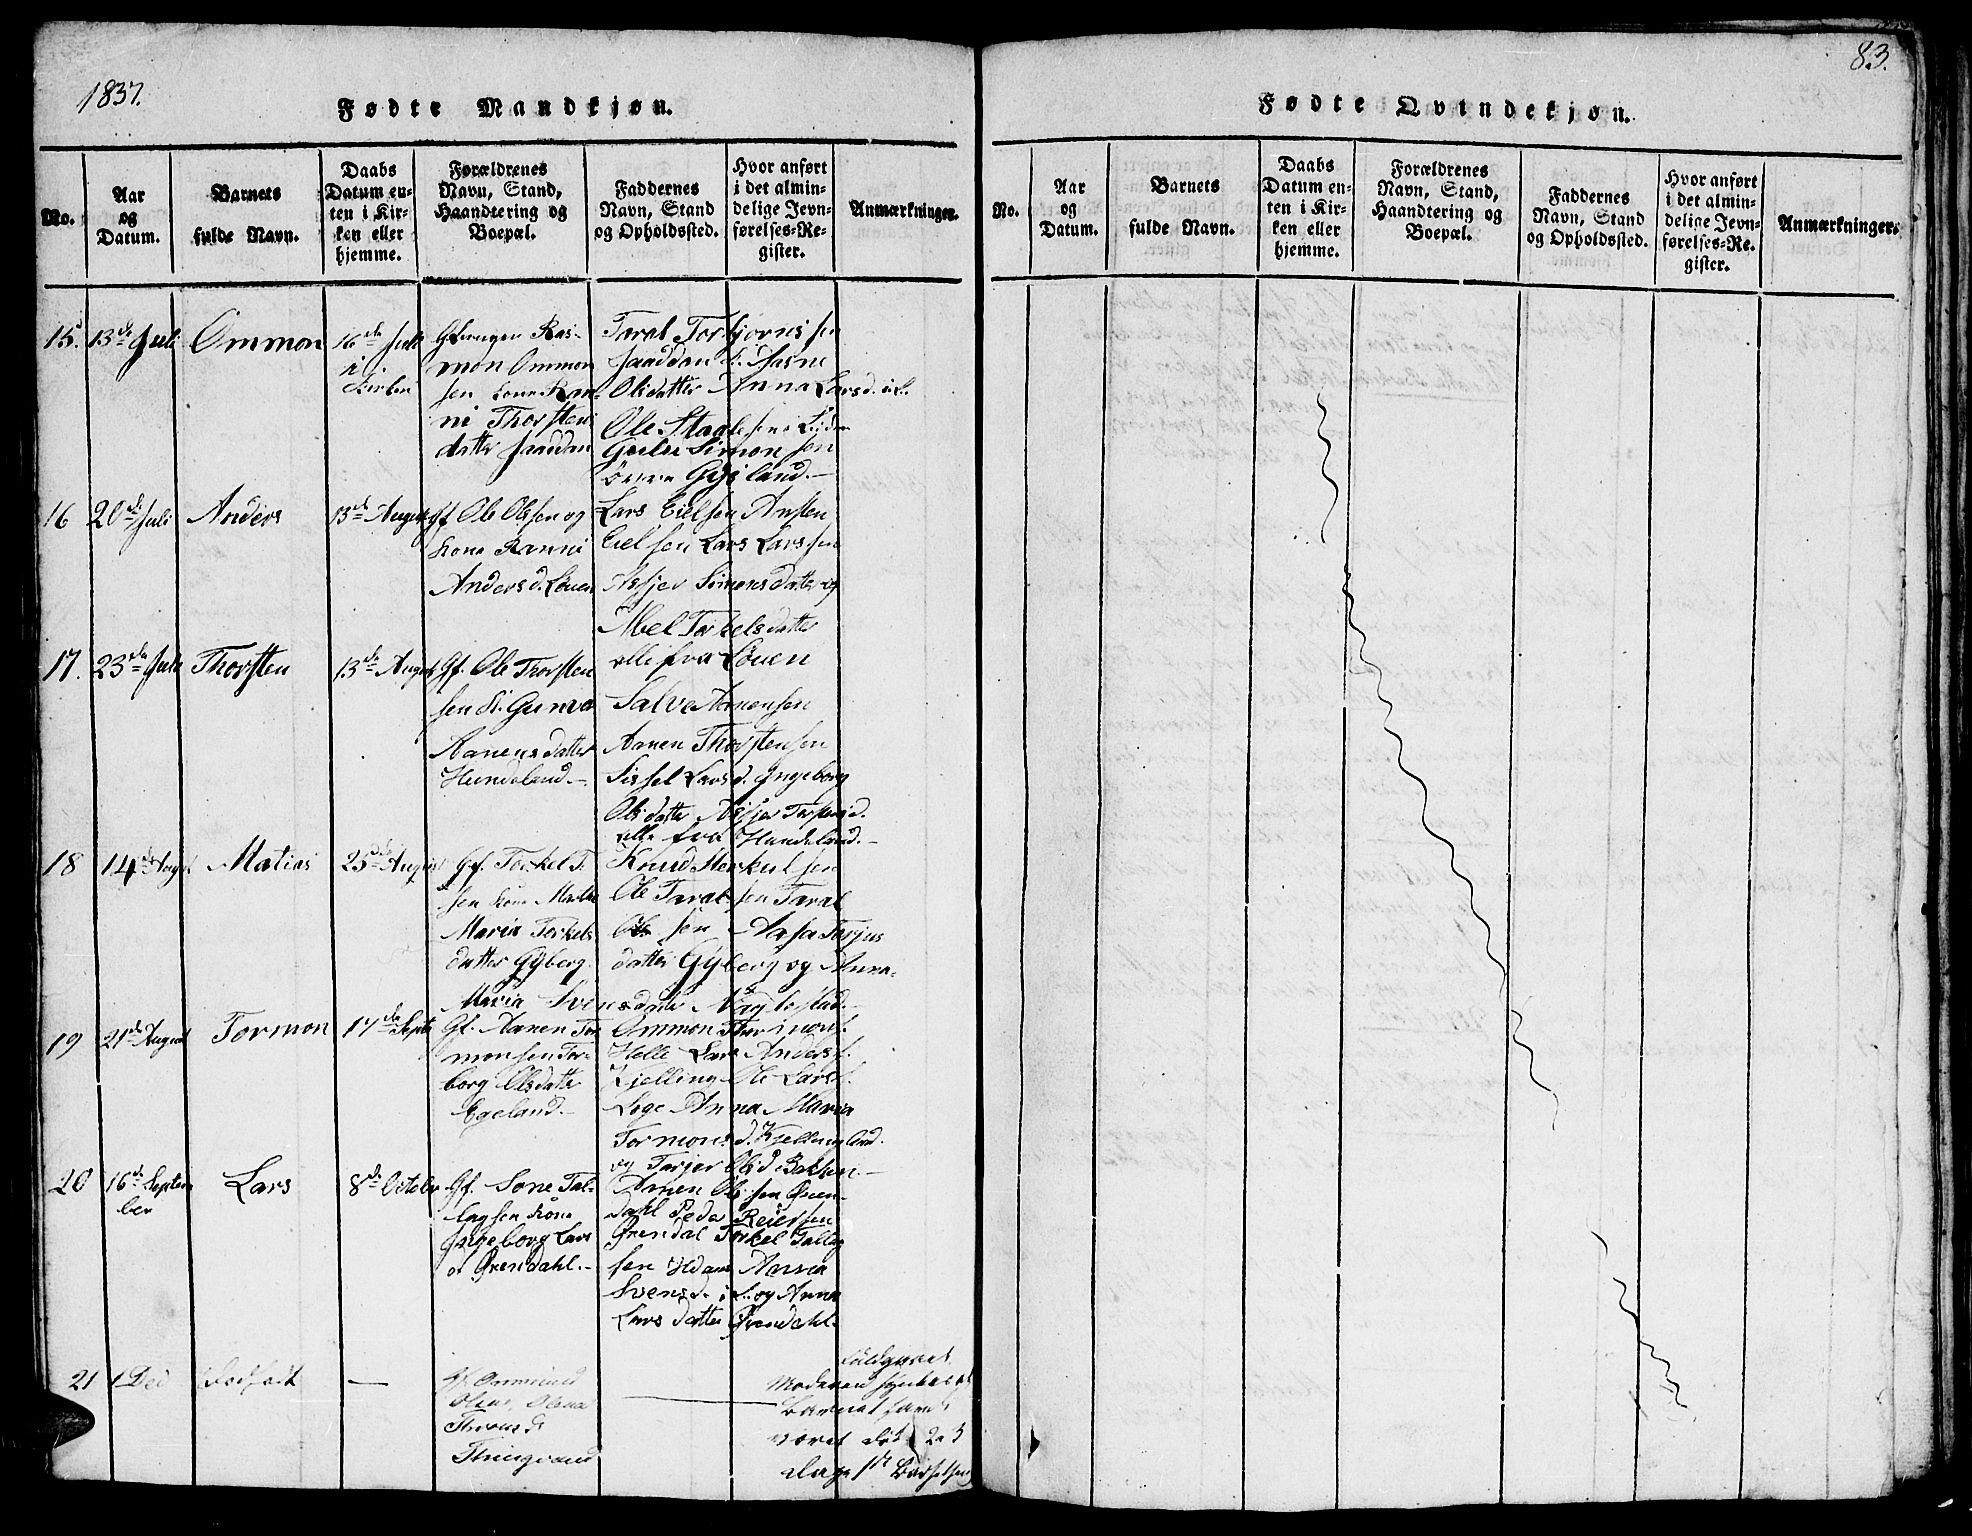 1837.
Fødte Mandkjøn.
No.
Aar og Datum.
Barnets fulde Navn.
Daabs Datum enten i Kirken eller hjemme.
Forældrenes Navn, Stand, Haandtering og Boepæl.
Faddernes Navn, Stand og Opholdssted.
Hvor anført i det almindelige Jevnførelses-Register.
Anmærkninger.
15. 13de Juli
Ommon
16de Juli
i
Kirken
Gbmugen Ras-
mon Ommon
sen kone Ran-
ni Thorsten
datter
Taral Torbjørnssen
Olsdatter Anna Larsd.
Ole
Simonsen
Gyland.
16 20de Juli
Anders
13de August
Gf. Ole Olsen og
kone Ranni
Andersd. Løuen
Lars Eielsen Ansten
Eielsen Lars Larssen
Asjer Simonsdatter og
Abel Torkelsdatter
alle fra Løuen
17. 23de Juli
Thorsten
13de August
Gf. Ole Thorsten
sen K. Gunvo
Aanensdatter
Hundeland.
Salve Aanensen
Aanen Thorstensen
Sissel Larsd. Ingeborg
Olsdatter Asjer Torstensd.
alle fra Hundeland.
18 14de August
Matias
25de August
Gf. Torkel T.
sen kone Marthe
Maria Torkels
datter Gyberg.
Knud Sterkulsen
Ole Taralsen Taral
Olsen Aasa Torjus
datter Gyberg og Anna
Maria Svensdatter
19 21de August
Tormon
17de Septe
Gf. Aanen Tor
monsen Tor-
borg Olsdatter
Egeland.
Ommon
Helle Lars Anders s.
Kjelling Ole Lars s.
Lege Anna Maria
Tormonsd. Kjellingland.
og Tarjer Olsd. Bakken
20 16de Septem
ber
Lars
8de October
Gf. Sone Tal-
lagsen kone
Ingeborg Lars
d. Ørendahl.
Aanen Olssen Øren-
dahl Peder Reiersen
Ørendal Torkel Tallag
sen Anna
Svensd. i d. og Anna
Larsdatter Ørendahl.
21 1 Dec
dødfødt
—
Gf. Ommund
Olsen, Olena
Thorsd.
Thingvand
Moderen
Barnet havde
været død 2 a 3
dage
83.
Fødte Qvindekjøn.
No.
Aar og Datum.
Barnets fulde Navn.
Daabs Datum enten i Kirken eller hjemme.
Forældrenes Navn, Stand, Haandtering og Boepæl.
Faddernes Navn, Stand og Opholdssted.
Hvor anført i det almindelige Jevnførelses-Register.
Anmærkninger.